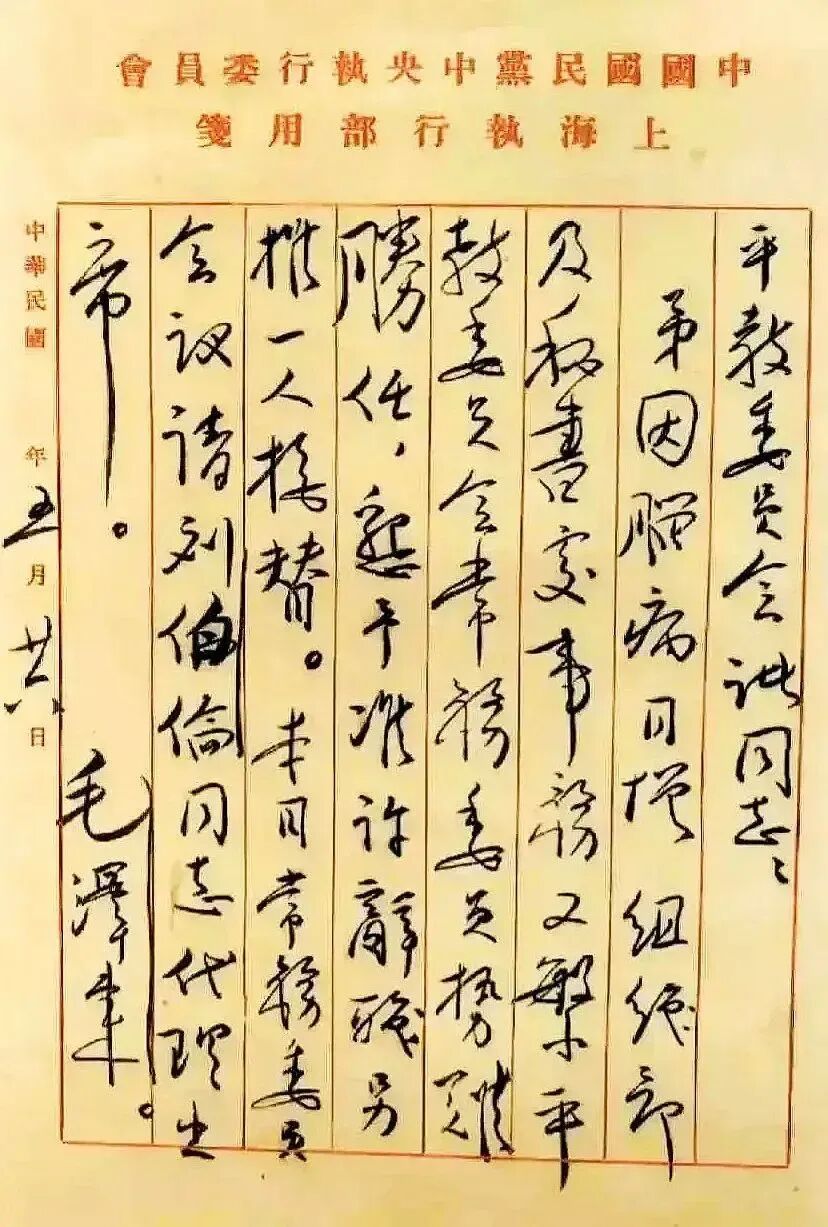 中國國民黨中央執行委員會
上海執行部用箋
平教委员会诸同志:
弟因腦病日增 组织部
及秘書处事務又繁平
教委员会常務委员势难
勝任,懇予准许辭職另
推一人接替。本日常務委员
会议请刘伯倫同志代理出
席。 毛澤東。
中華民國 年五月廿六日